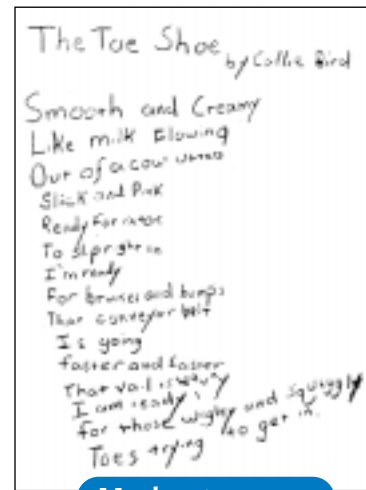 The Toe Shoe
by Callie Bird
Smooth and Creamy
Like milk Flowing
Out of a cow
Slick and Pink
Ready For a toe
To slip right in
I'm ready
For bruises and bumps
That conveyor belt
Is going
faster and faster
That
I am ready
for those wigly and Squiggly
Toes trying to get in.